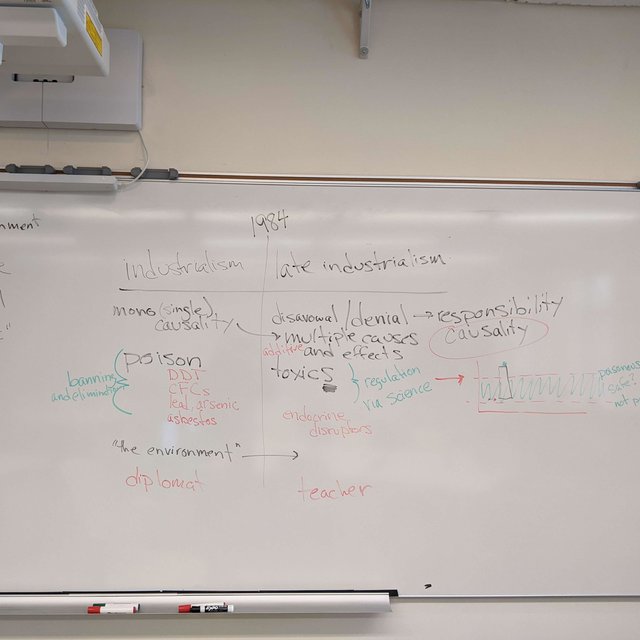 1984
industrialism
late industrialism
mono (single)
causality
disavowal/denial → responsibility
multiple causes
additive and effects
causality
poison
DDT
CFCs
lead, arsenic
asbestos
banning
toxics
regulation
via science
endocrine
disruptors
"the environment" →
diplomat
teacher
safe?